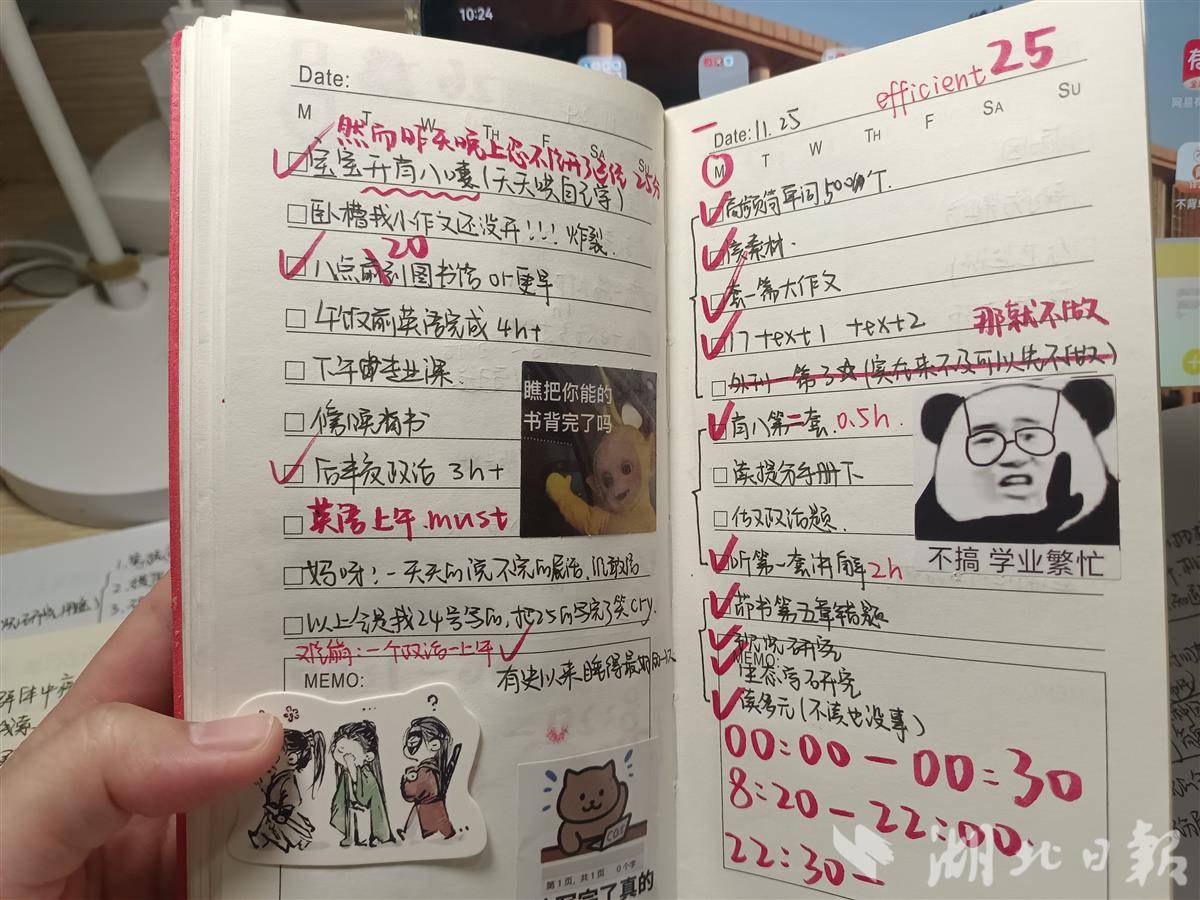 10:24
Date:
M T W TH F SA SU
然而昨天晚上您不 25分
宝宝开肖八喽(天天哄自己学)
卧槽我小作文还没弄!!!炸裂.
20
八点前到图书馆 or更早
午饭前英语完成 4h+
下午专业课.
傍晚背书
后半夜政治 3h+
英语上午 must
妈呀:一天天的说不完的屁话,
以上全是我24号写的,把25的写完了笑cry.
难崩:一个政治一上午
有史以来睡得最 的一次
MEMO:
瞧把你能的
书背完了吗
?
第1页,共1页 0个字
写完了真的
efficient 25
Date: 11.25
M T W TH F SA SU
高频简单词5000个.
背素材.
套一篇大作文
17 text1 text2 那就不做
外刊一篇 (实在来不及可以先不做)
肖八第二套. 0.5h.
读提分手册下
政治题.
听第一套讲解 2h
节书第五章错题
研究
MEMO:
研究
读多元(不读也没事)
00:00 — 00:30
8:20 — 22:00.
22:30 —
不搞 学业繁忙
湖北日报